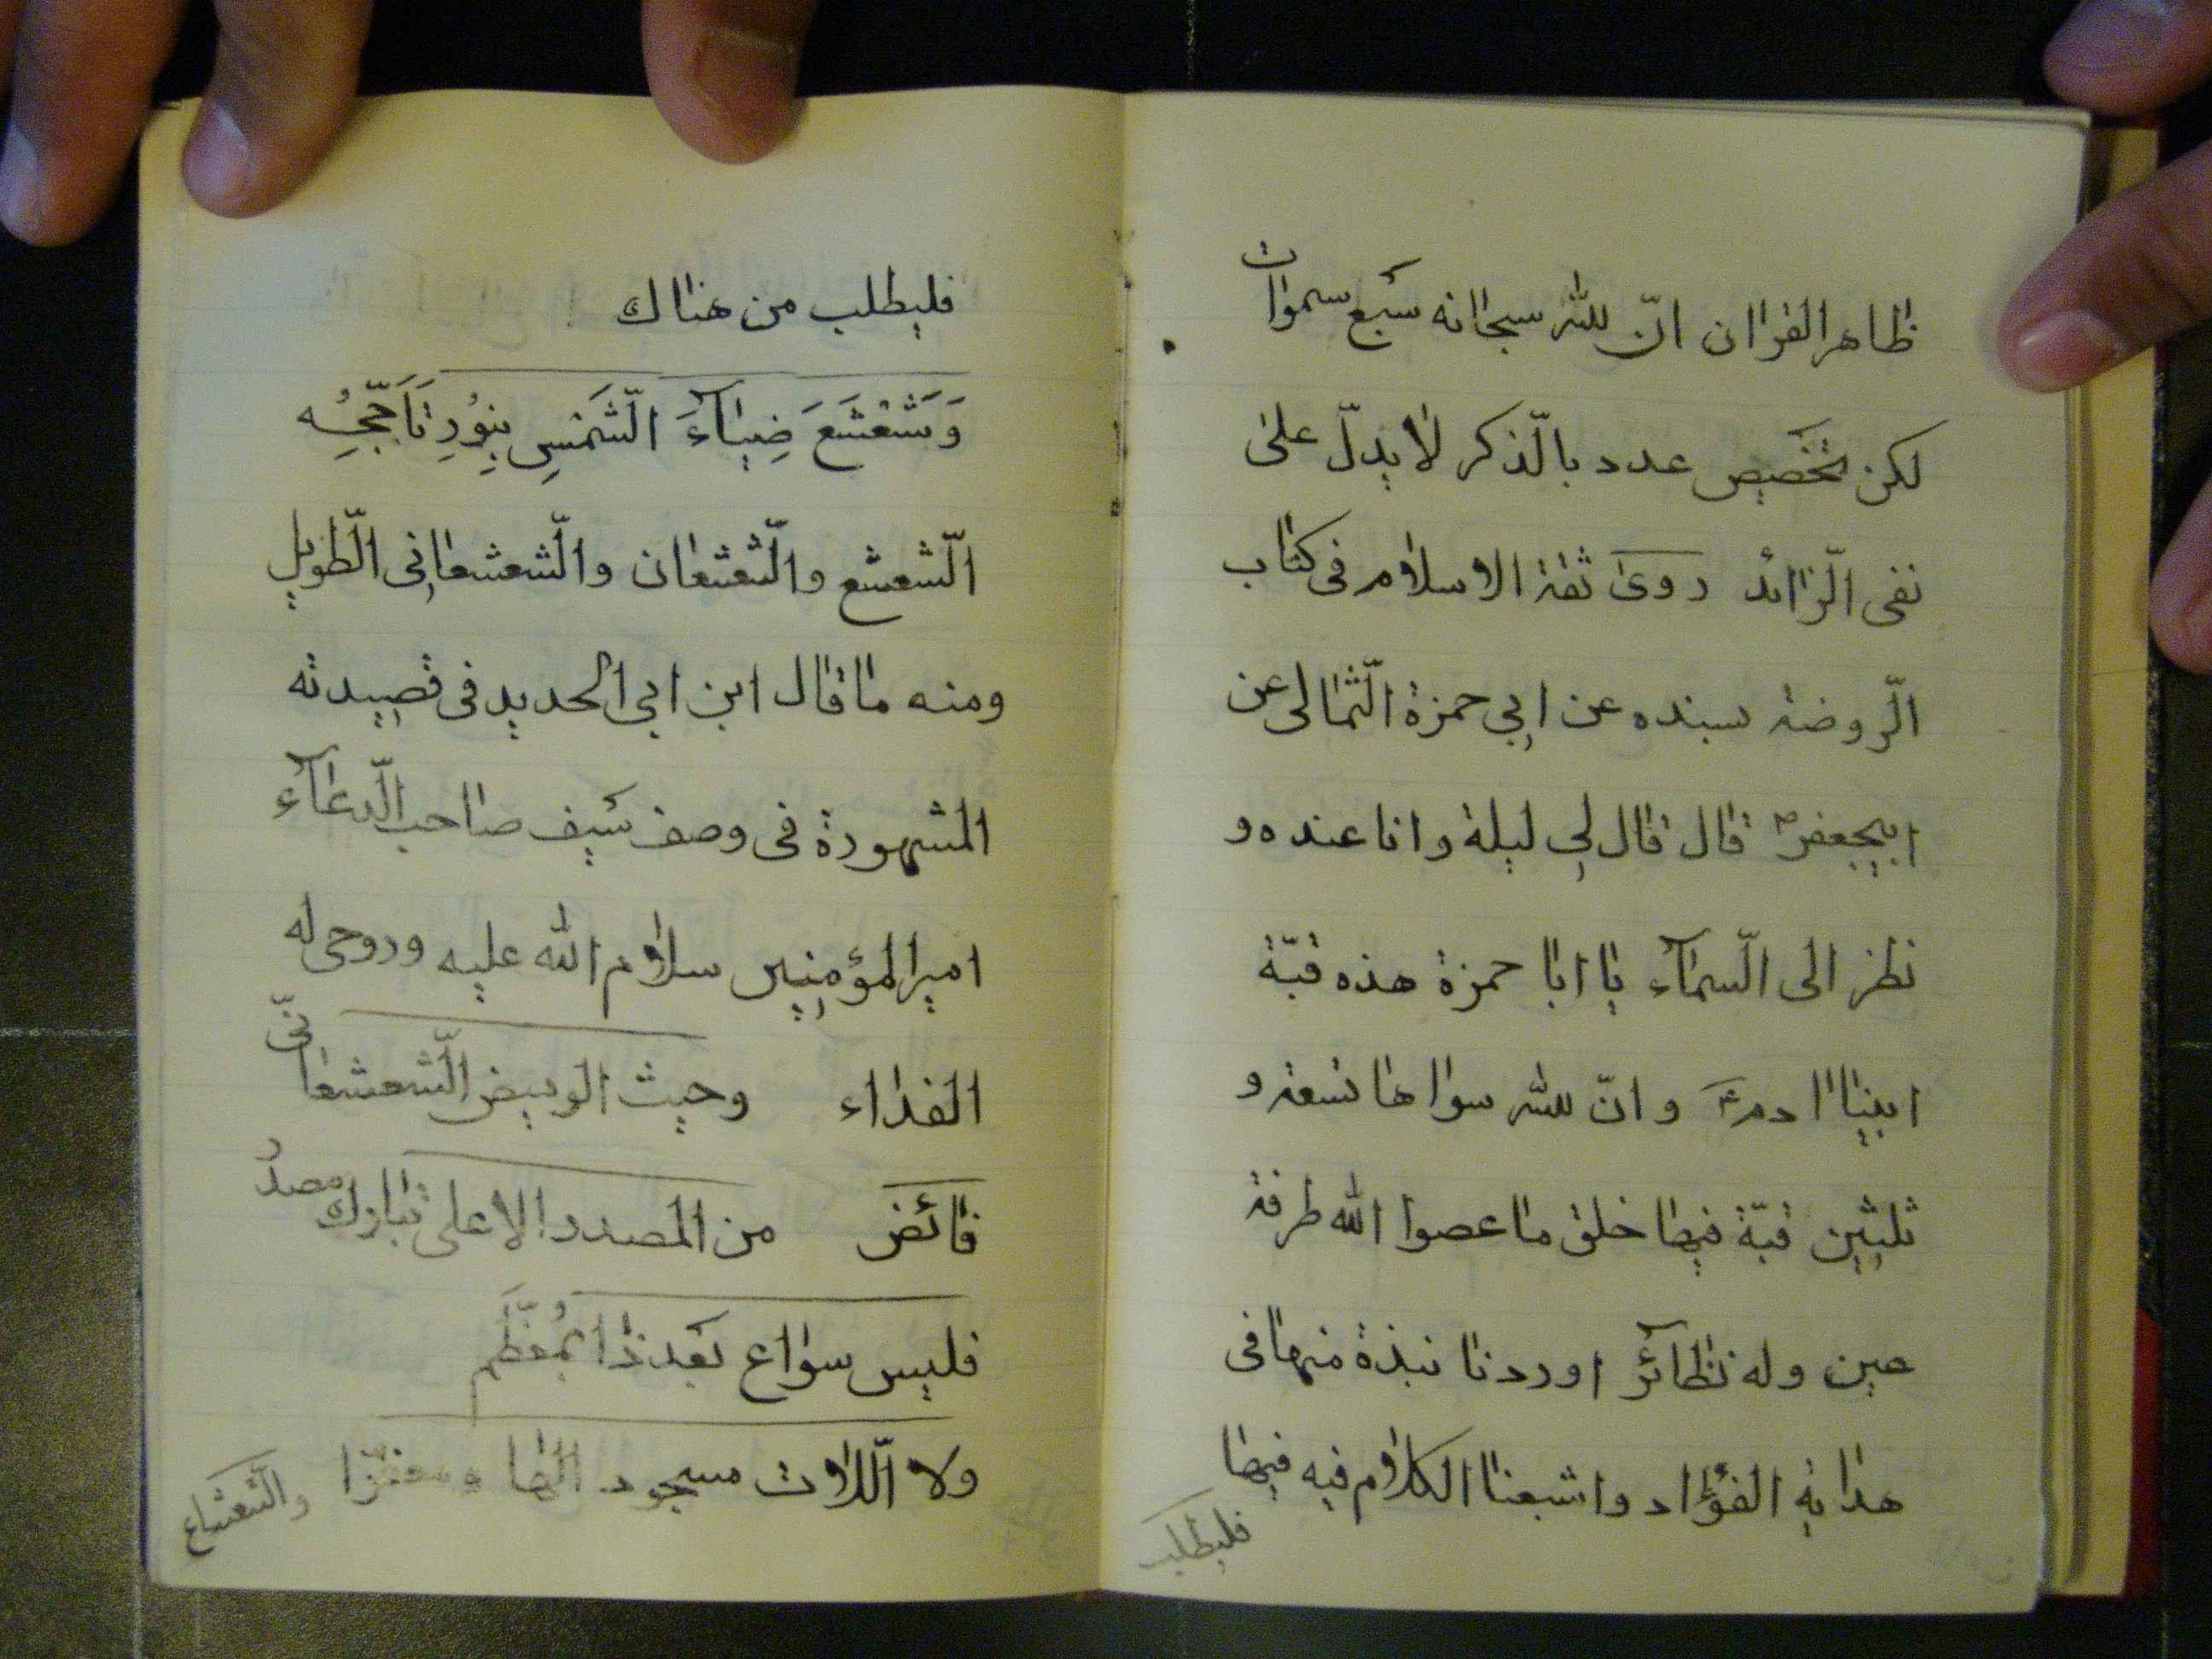 ظاهر القران انّ للّٰه سبحانه سبع سموات
لكن تخصيص عدد بالّذكر لا يدلّ على
نفى الّزائد روى ثقة الاسلام فى كتاب
الّروضة بسنده عن ابي حمزة الّثمالى عن
ابيجعفر ع قال قال لي ليلة وانا عنده و
نظر الى الّسمآء يا ابا حمزة هذه قبّة
ابينا ادم ع و انّ للّٰه سواها تسعة و
ثلثين قبّة فيها خلق ما عصوا الله طرفة
عين وله نظآئر اوردنا نبذة منها فى
هداية الفؤاد واشبعنا الكلام فيه فيها
فليطلب
فليطلب من هناك
وَشَعْشَعَ ضِيٰآءَ الّشَمْسِ بِنُورِ تَاَجُّجِه
الّشعشع والّشعشعان والّشعشعانى الّطويل
ومنه ما قال ابن ابي الحديد فى قصيدته
المشهورة فى وصف سيف صاحب الّدعآء
امير المؤمنين سلام الله عليه وروحى له
الفداء وحيث الوميض الّشعشعانىّ
فائض من المصدر الاعلى تبارك مصدرُ
فليس سواع بَعْد ذا بمُعَظَّم
ولا الّلات مسجود الها ومعفّرا
والّشعشاع